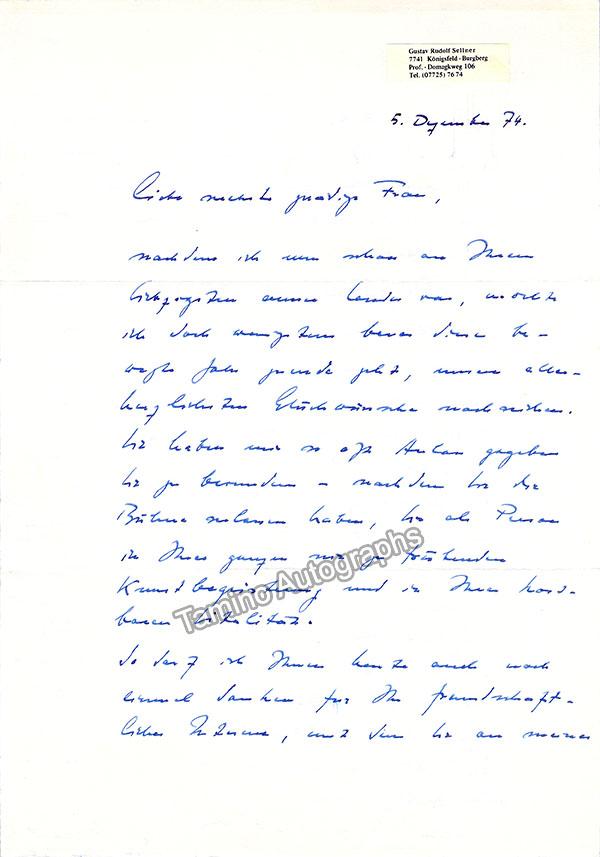 Gustav Rudolf Sellner
7741 Königsfeld - Burgberg
Prof. - Domagkweg 106
Tel. (07725) 76 74
5. Dezember 74.
Liebe gnädige Frau,
nachdem ich nun schon an Ihrem
möchte
ich doch wenigstens bevor dieses be-
wegte Jahr zu Ende geht, unsere aller-
herzlichsten Glückwünsche nachreichen.
Sie haben uns so oft Anlass gegeben
Sie zu bewundern - nachdem Sie die
Bühne verlassen haben, Sie als Person
in Ihrer ganzen nie zu
Kunstbegeisterung und in Ihrer kost-
baren Vitalität.
So darf ich Ihnen heute auch noch
einmal danken für Ihr freundschaft-
liches Interesse, mit dem Sie an meiner
Tamino Autographs